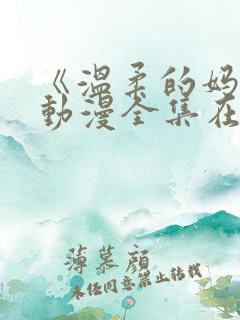 《温柔的妈
動漫全集在
薄慕顏
未经同意禁止转载